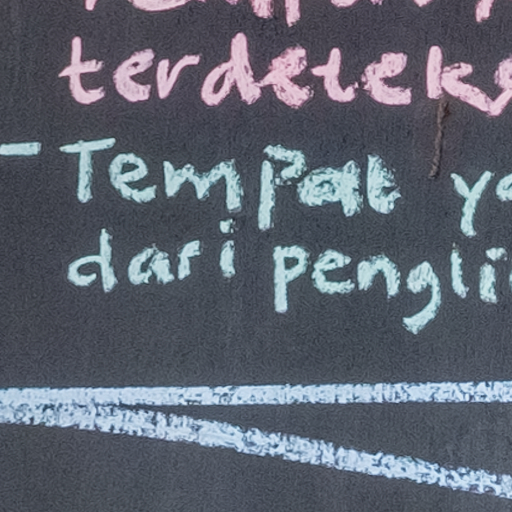 terdeteks
- Tempat ya
dari pengli